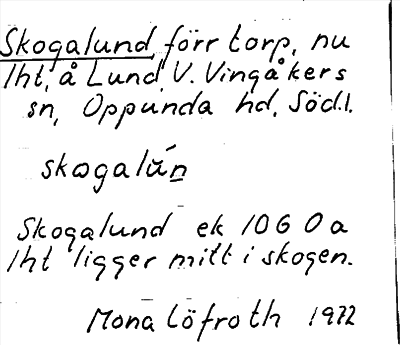 Skogalund, förr torp, nu
lht, å Lund, V. Vingåkers
sn, Oppunda hd, Södl.
skogalún
Skogalund ek 10G 0a
lht ligger mitt i skogen.
Mona Löfroth 1972